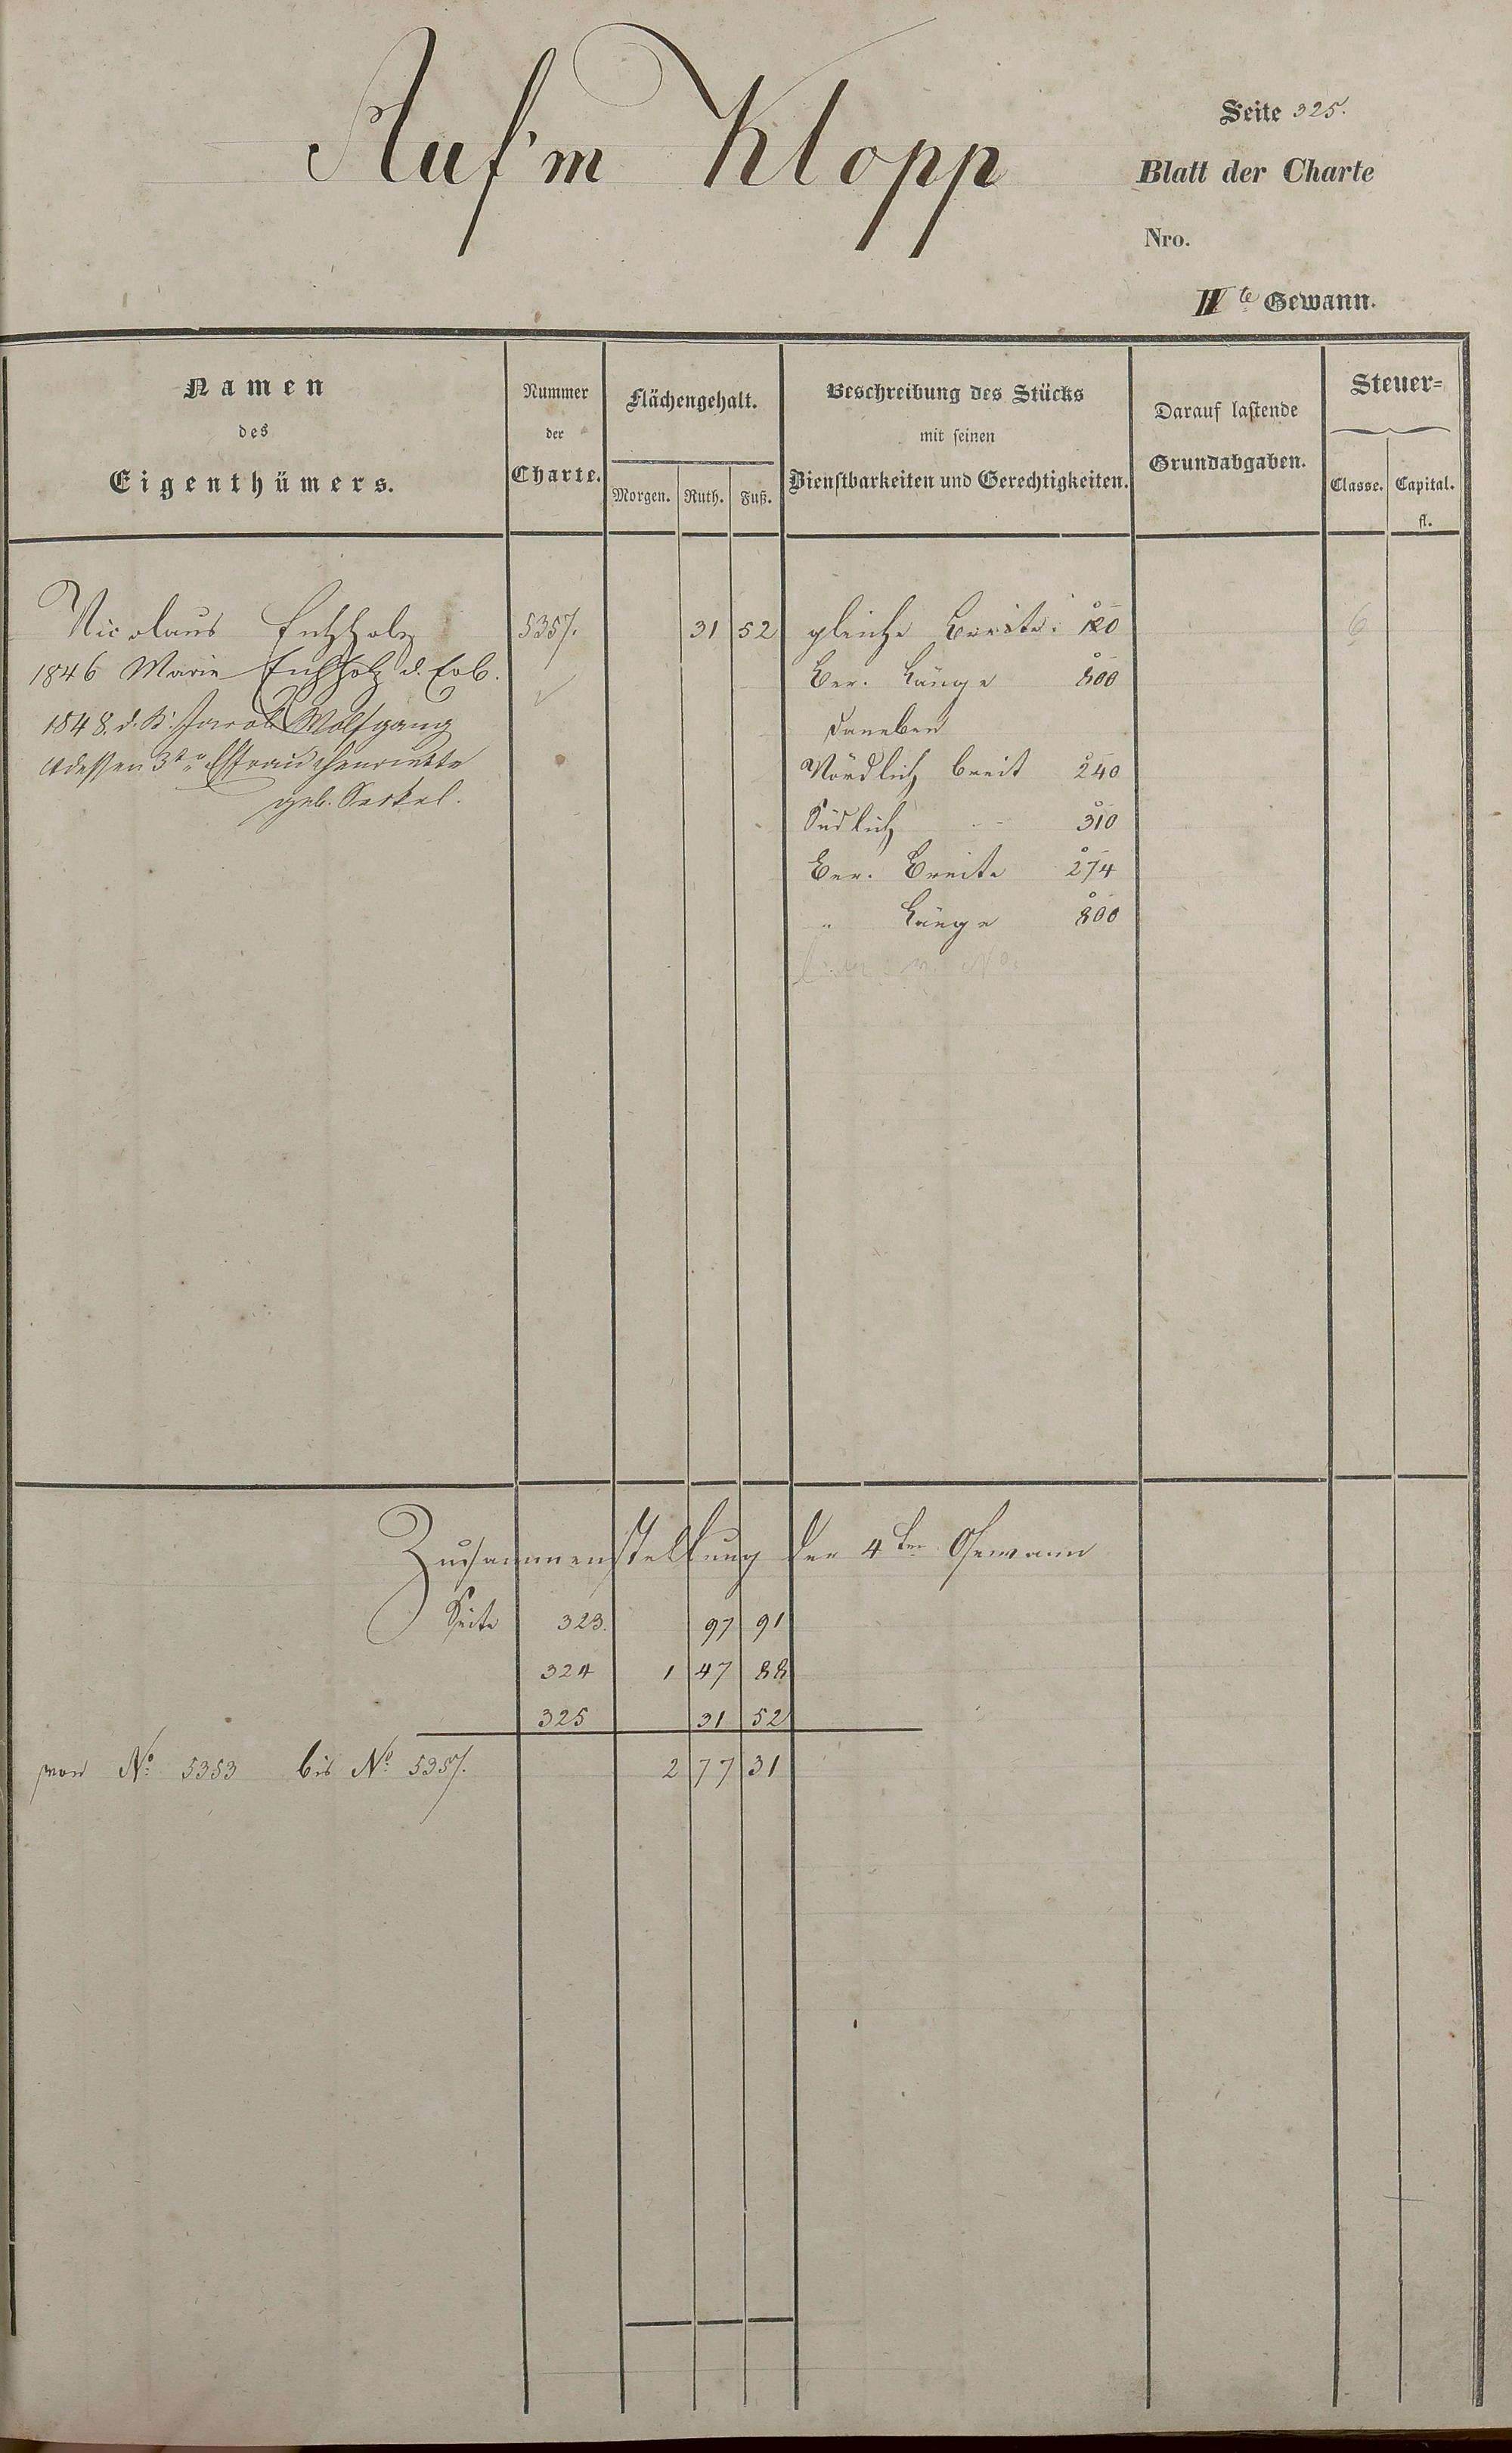 Auf'm Klopp
Seite 325.
Blatt der Charte
Nro.
IVte Gewann.
Namen
des
Eigenthümers.
Nummer
der
Charte.
Flächengehalt.
Morgen. Ruth. Fuß.
Beschreibung des Stücks
mit seinen
Dienstbarkeiten und Gerechtigkeiten.
Darauf lastende
Grundabgaben.
Steuer=
Classe. Capital.
fl.
Nicolaus 5357. 31 52 gleiche Breite: 120 6
1846 Marie d. Erb. Ber. Länge 800
1848. d. K. Jacob Wolfgang daneben
dessen 3te Ehefrau Henriette Nördlich breit 240
geb. Südlich 310
Ber. Breite 274
" Länge 800
Zusammenstellung der 4ten Gewann
Seite 323. 97 91
324 1 47 88
325 31 52
von No. 5353 bis No. 5357. 2 77 31